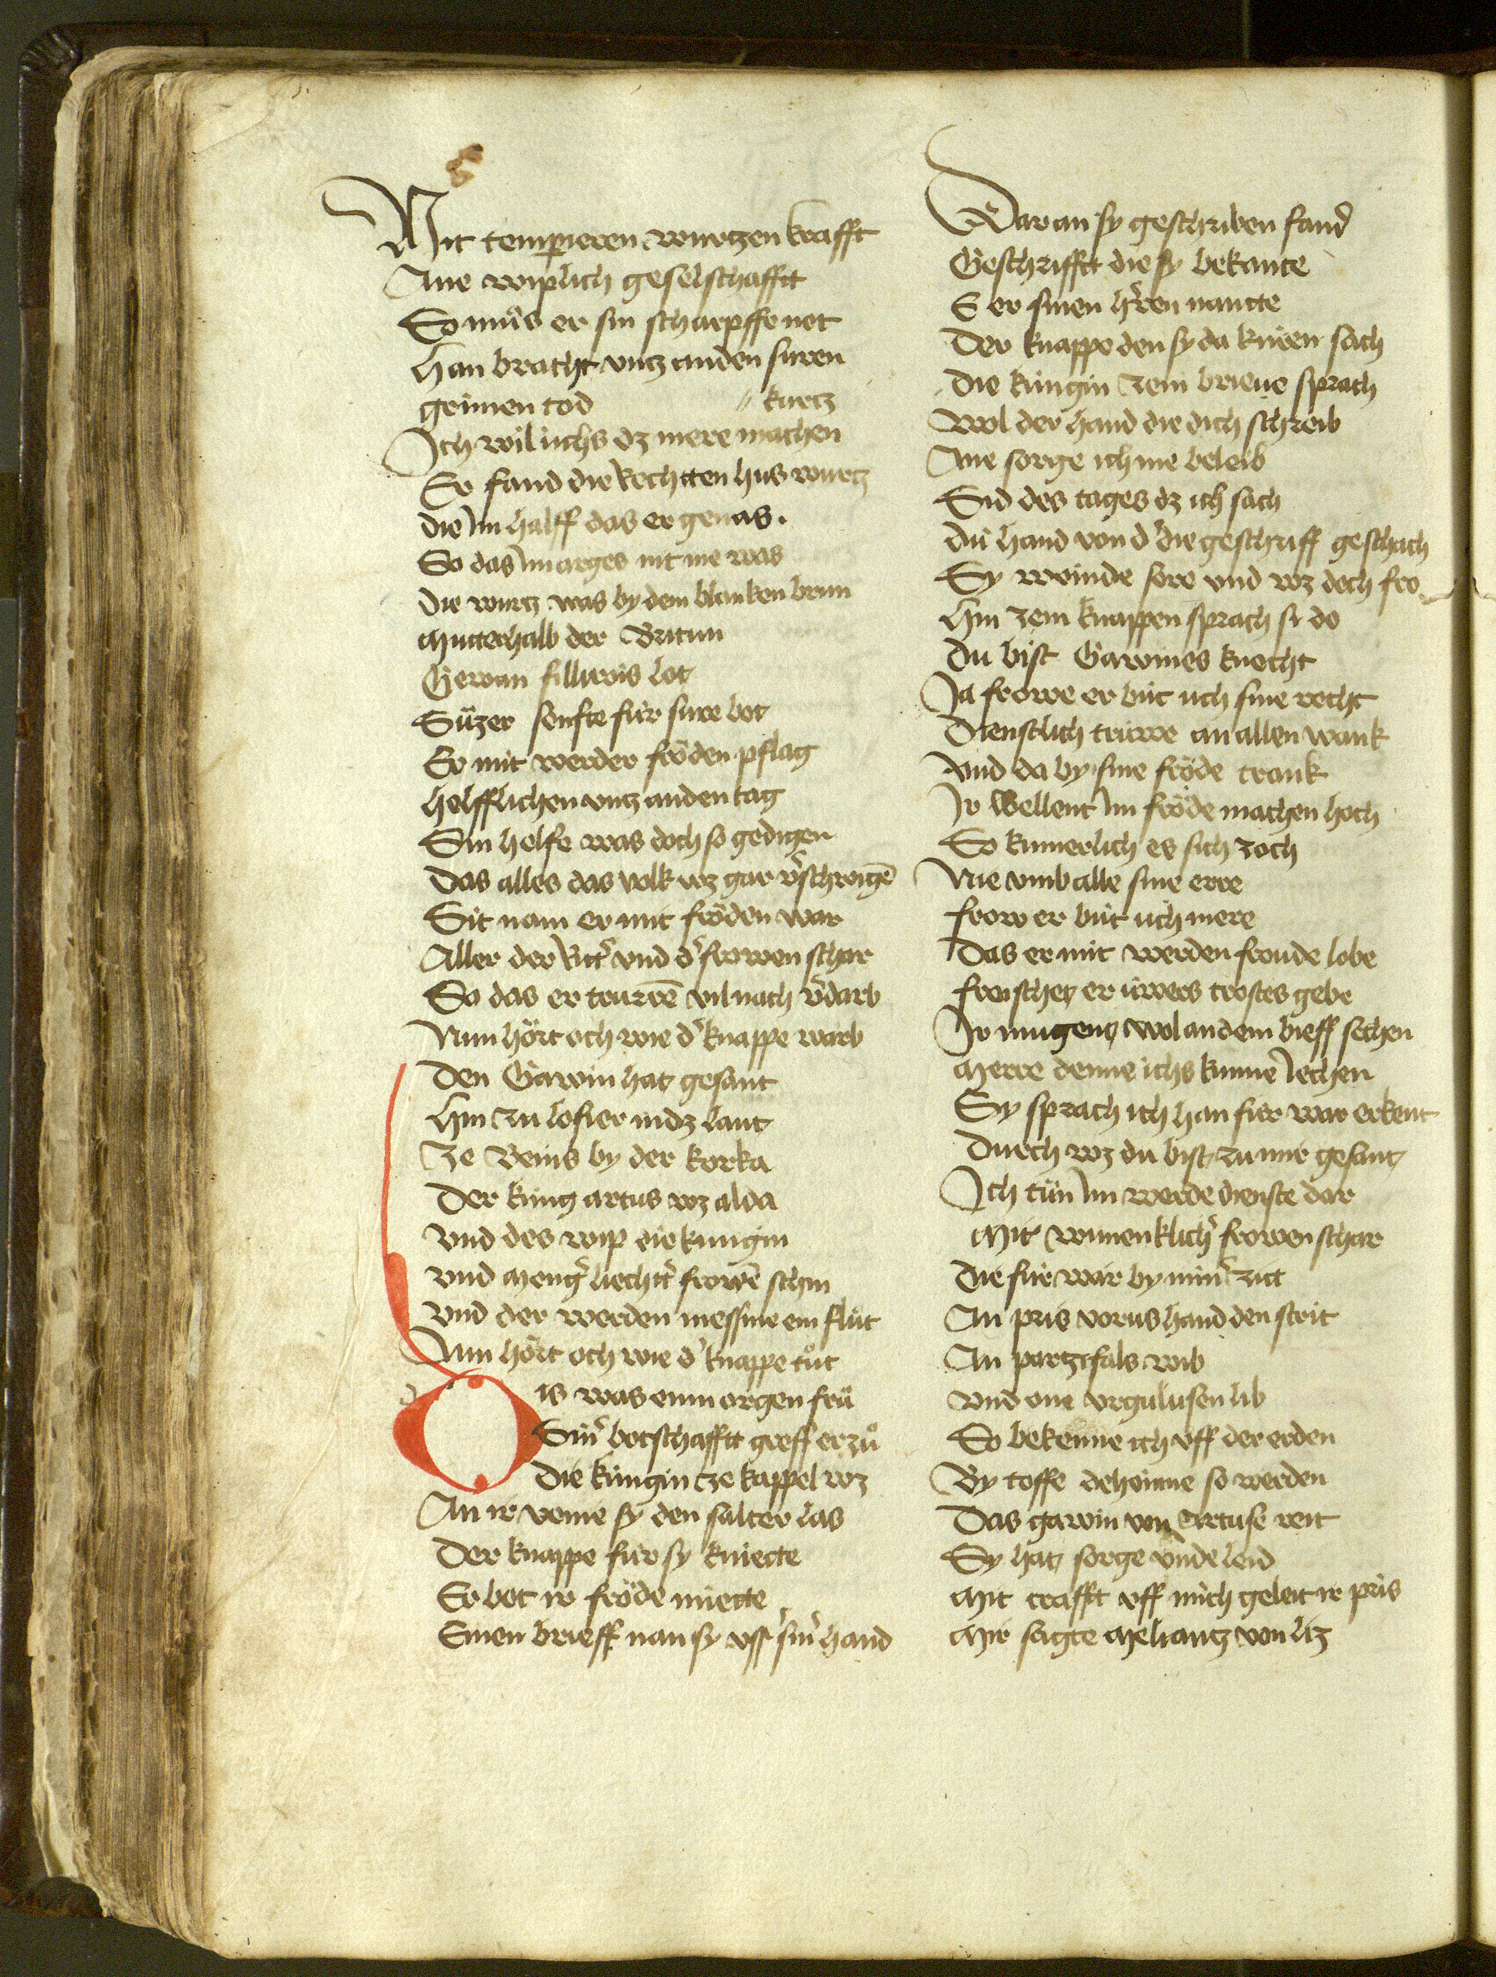 Mit temperieren wurtzen krafft
Ane wiplich geselschafftt
So muͦs er sin scharpffe not
Han bracht vntz an den suren
grimen tod // kurtz
Ich wil úchs dz mere machen
Er fand die rechtten hus wurtz
die im halff das er genas.
So das im arges nit me was
Die wurtz was by dem blanken brun
Mutterhalb der Britun
Gewan fillurois lot
Süzer senfte für sure bot
Er mit werder fröden pflag
helfflichen vntz an den tag
Sin helfe was doch so gedigen
Das alles das volk wz gar v̓schwigē
Sit nam er mit fröden war
Aller der ritt̓ vnd d̓ frowen schar
So das er trurrē vil nach v̓darb
Nun hört och wie d̓ knappe warb
Den Gawin hatt gesant
Hin zu lofier in dz lant
Ze Bems by der korka
Der kúng artus wz alda
Vnd des wip die kúngin
Vnd meng̓ liechtt̓ frowē schin
Vnd der werden messine ein fluͤt
Nun hört och wie d̓ knappe tuͦt
Dis was eim morgen fruͤ
Sin̓ botschafftt greff er zuͦ
Die kúngin ze kappel wz
An ir venie sy den salter las
Der knappe fúr sy kniette
Er bot ir fröde miette
Einen brieff nan sy vss sin̓ hand
Dar an sy geschriben fand
Geschrifftt die sy bekante
E er sinen h̓ren nantte
Der knappe den sy da knúen sach
Die kúngin zem brieue sprach
Wol der hand die dich schreib
Ane sorge ich nie beleib
Sid des tages dz ich sach
Dú hand von d̓ die geschriff geschach
Sy weinde sere vnd wz doch fro
Hin zem knappen sprach si do
Du bist Gawines knecht
Ja frowe er bút úch sine recht
Dienstlich trúwe an allen wank
Vnd da by sine fröde crank
Ir wellent im fröde machen hoch
So kumerlich es sich zoch
Nie vmb alle sine erre
frow er bút úch mere
Das er mit werden froude lebe
froischet er úwers trostes gebe
Ir mugent wol an dem brieff sechen
Merre denne ichs kunne iechen
Sy sprach ich han fúr war erkent
Durch wz du bist zu mir gesant
Ich tuͤn im werde dienste dar
Mit wunenklich̓ frowen schar
Die fúr war by min̓ zitt
An pris vorus hand den strit
An partzifals wib
Vnd one vrgulusen lib
So bekenne ich vff der erden
By toffe deheinne so werden
Das gawin von Artuse reit
Sy hatt sorge vnde leid
Mit crafft vff mich geleit ir pris
Mir sagte Meliantz von liz